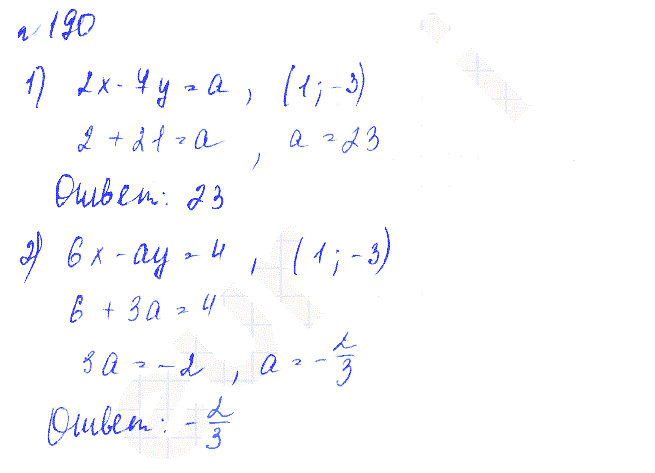 №190
1) 2x-7y=a, (1;-3)
2+21=a, a=23
Ответ: 23
2) 6x-ay=4, (1;-3)
6+3a=4
3a=-2, a=-2/3
Ответ: -2/3